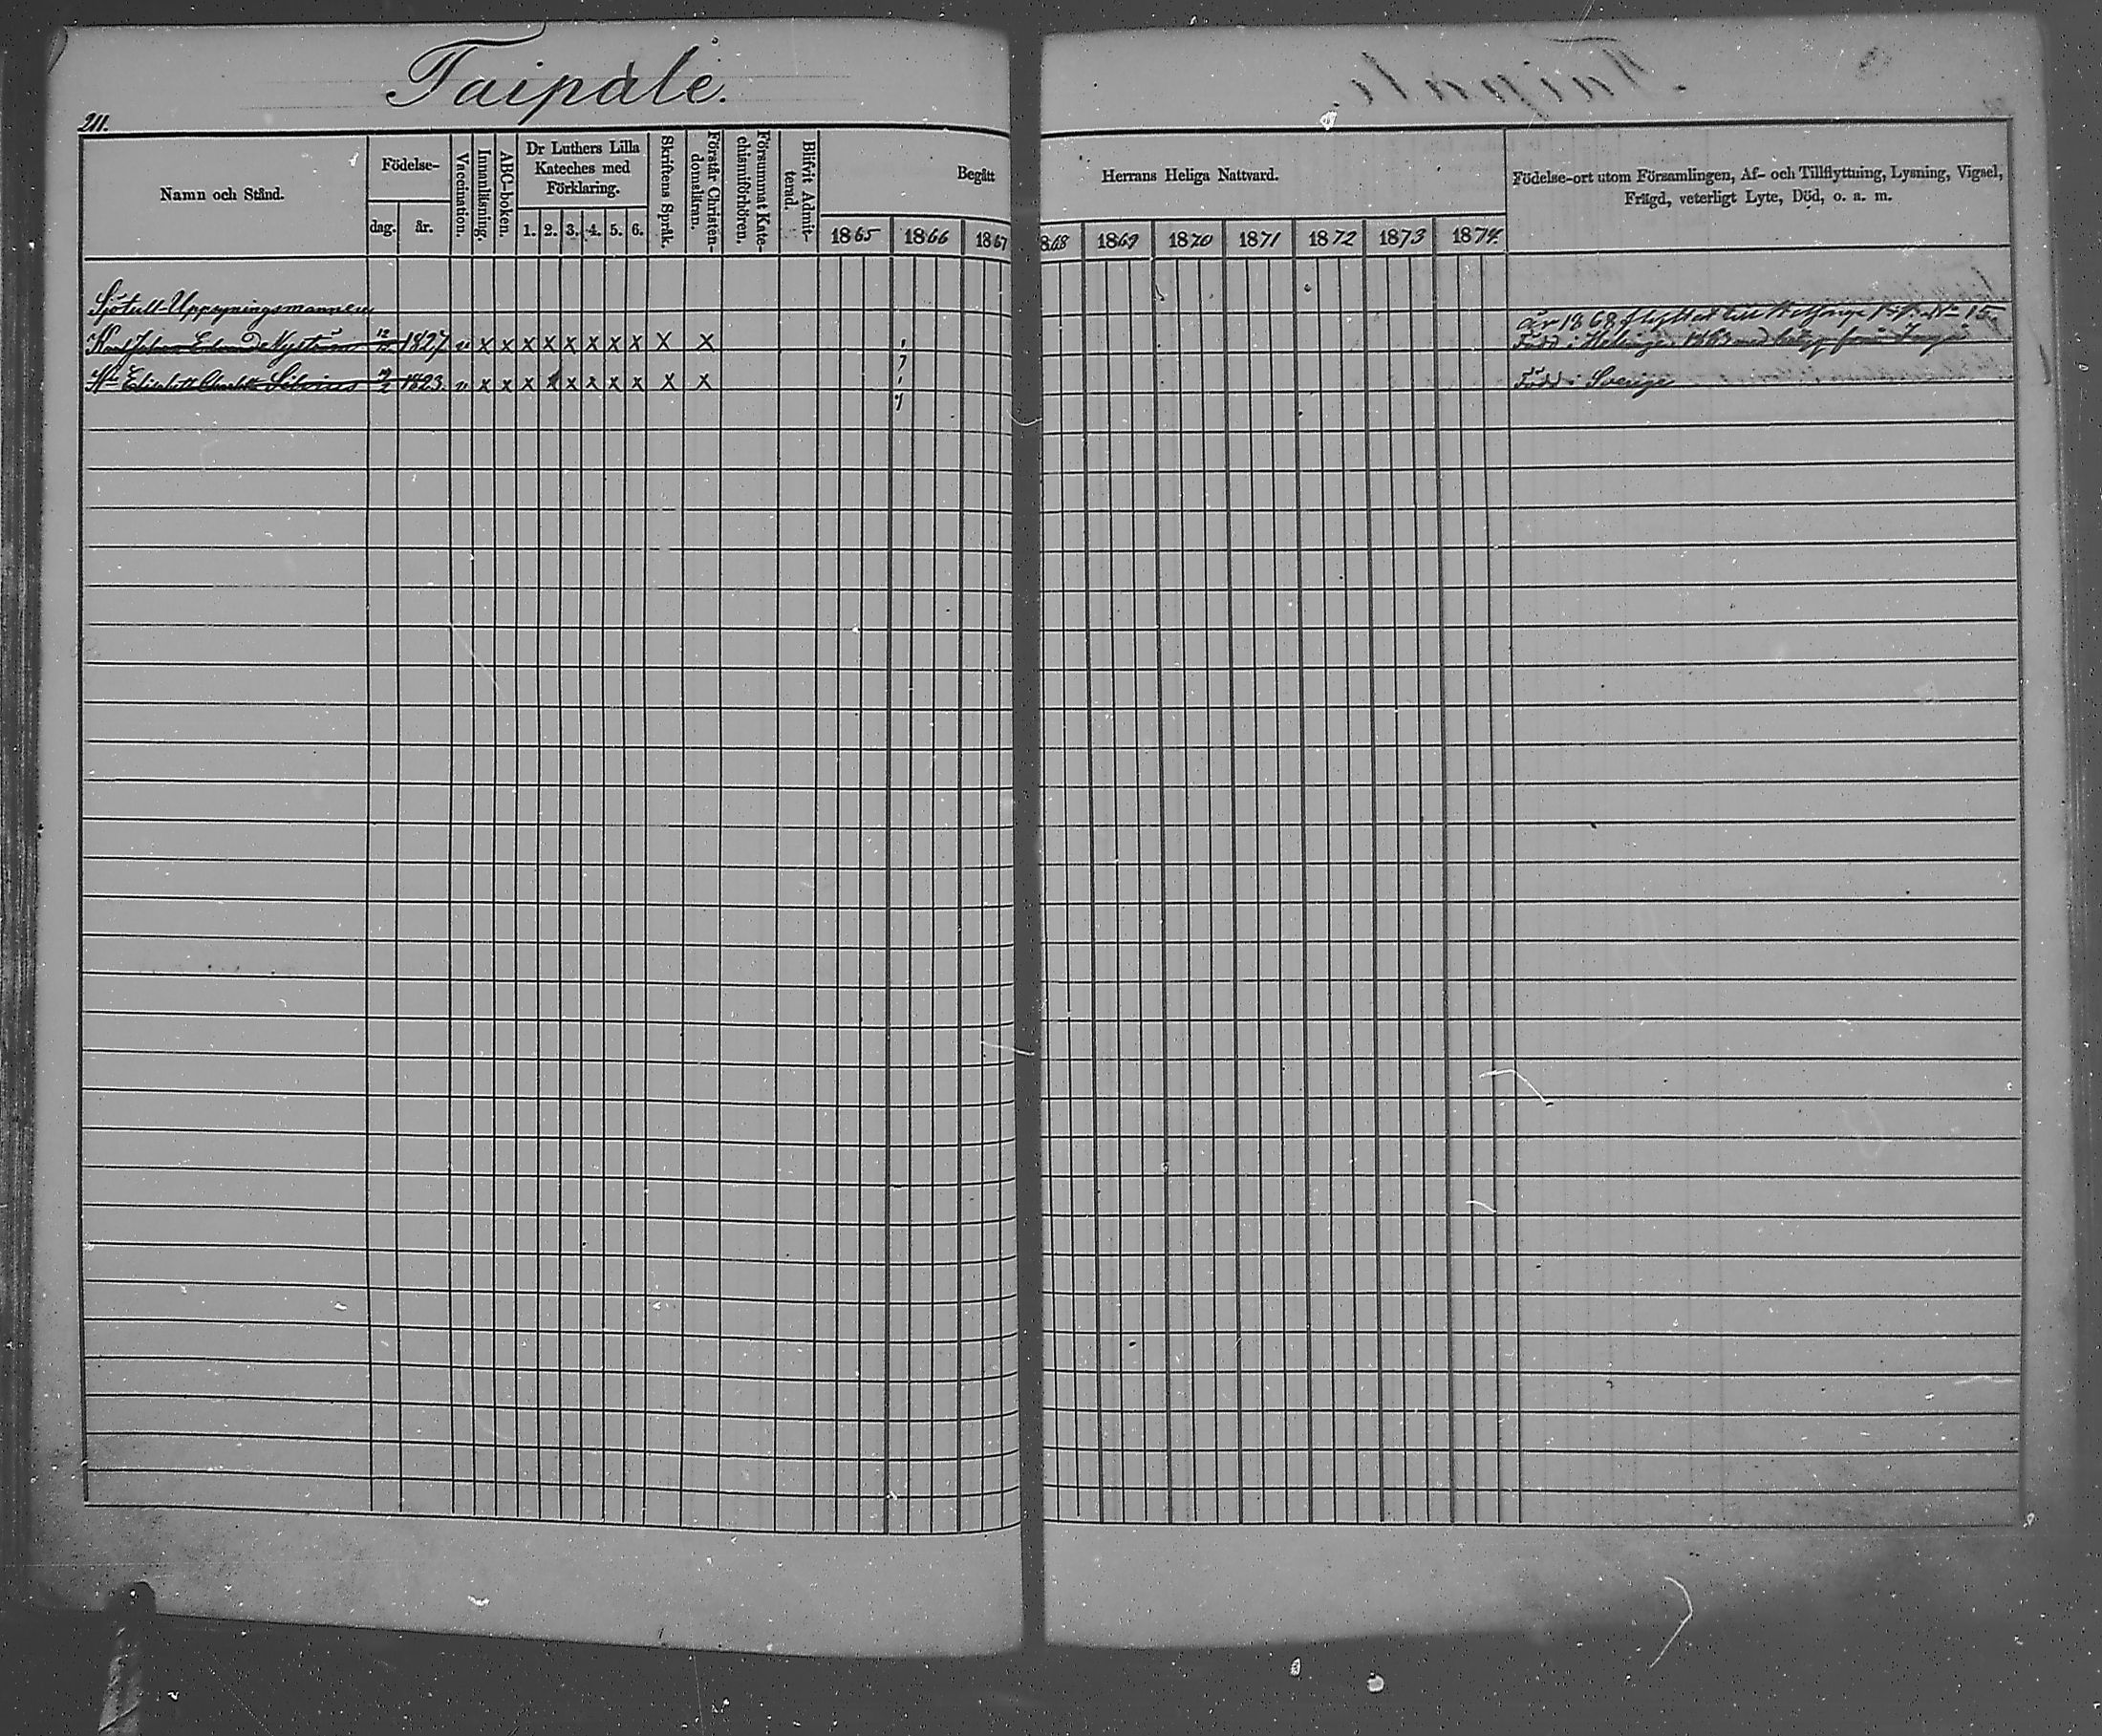 Taipale.
211.
Namn och Stånd.
Födelse-
dag.
år.
Vaccination.
Innanläsning.
ABC-boken.
Dr Luthers Lilla
Kateches med
Förklaring.
1. 2. 3. 4. 5. 6.
Skriftens Språk.
Förstår Christen-
domsläran.
Försummat Kate-
chismiförhören.
Blifvit Admit-
terad.
Begått
Herrans Heliga Nattvard.
1865 1866 1867
868 1869 1870 1871 1872 1873 1874
Födelse-ort utom Församlingen, Af- och Tillflyttning, Lysning, Vigsel,
Frägd, veterligt Lyte, Död, o. a. m.
Sjötull-Uppsyningsmannen
år 1868 flyttad till
Karl Johan Edvard Nyström 1827 " x x x x x x x x x x
Född i 1863 med från
Elisabeth Charlotta 1823 " x x x x x x x x x x
Född i Sverige